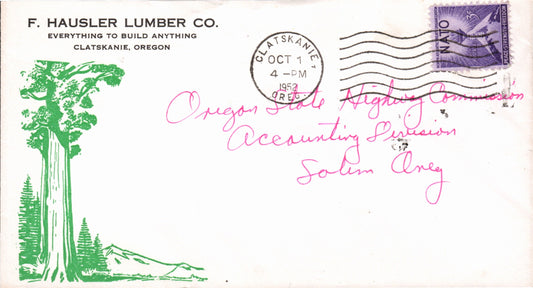 F. HAUSLER LUMBER CO.
EVERYTHING TO BUILD ANYTHING
CLATSKANIE, OREGON
CLATSKANIE
OCT 1
4-PM
1952
OREG.
NATO
3¢
Oregon State Highway Commission
Accounting Division
Salem Oreg